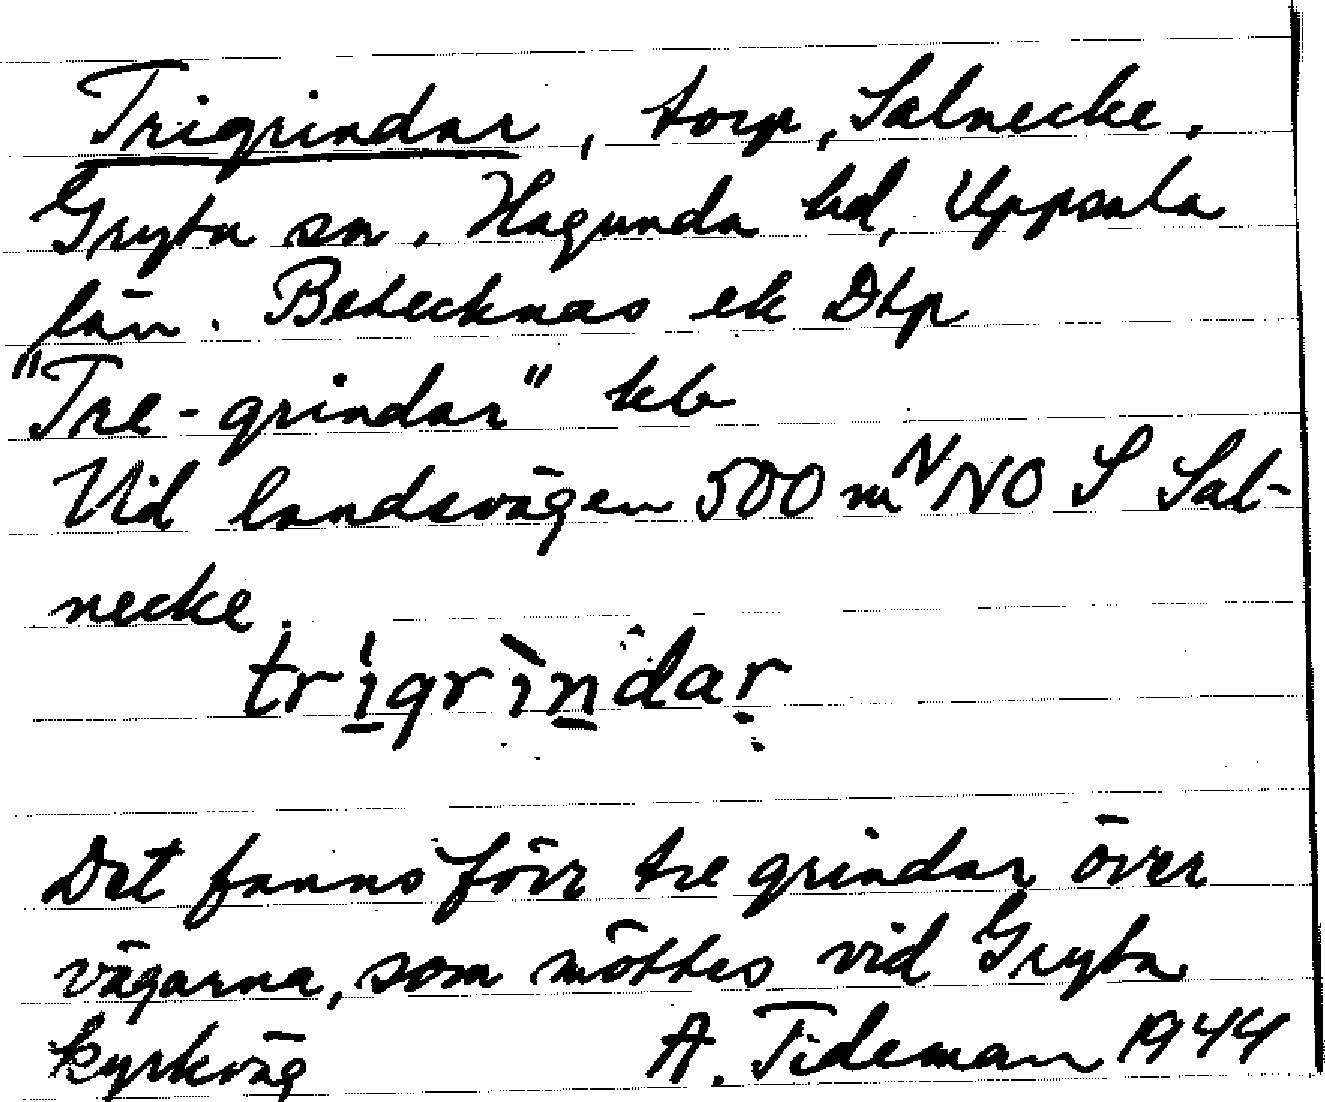 Trigrindar, torp, Salnecke,
Gryta sn, Hagunda hd, Uppsala
län. Betecknas ek Dtp
"Tre-grindar" kb
Vid landsvägen 500 m NNO S Sal-
necke.
trigrìndar
Det fanns förr tre grindar över
vägarna, som möttes vid Gryta
kyrkväg A. Tideman 1944